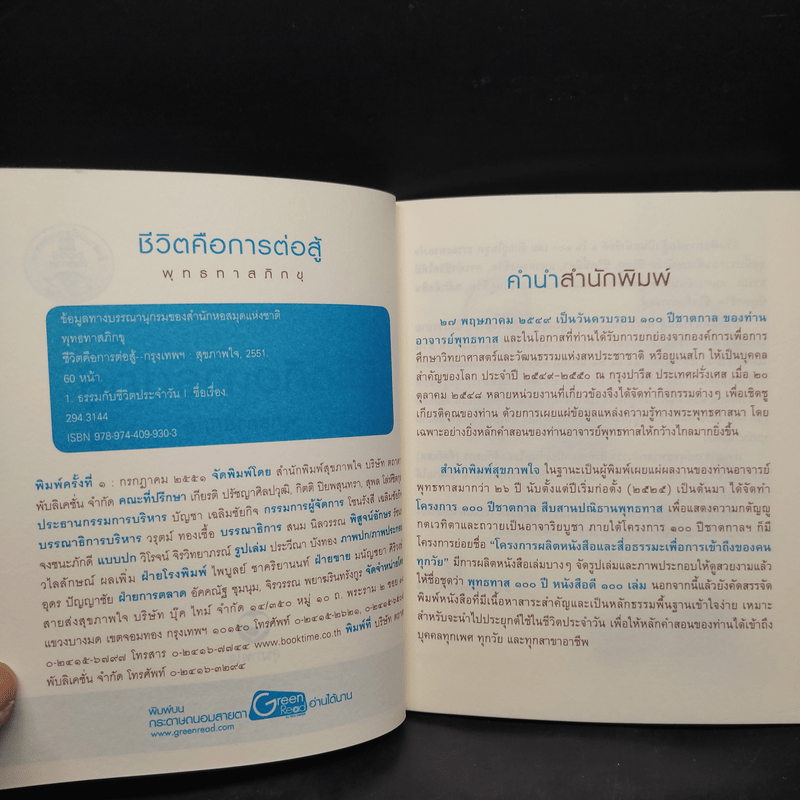 ชีวิตคือการต่อสู้
พุทธทาสภิกขุ
ข้อมูลทางบรรณานุกรมของสำนักหอสมุดแห่งชาติ
พุทธทาสภิกขุ
ชีวิตคือการต่อสู้--กรุงเทพฯ : สุขภาพใจ, 2551.
60 หน้า.
1. ธรรมกับชีวิตประจำวัน I. ชื่อเรื่อง.
294.3144
ISBN 978-974-409-930-3
พิมพ์ครั้งที่ ๑ : กรกฎาคม ๒๕๕๑ จัดพิมพ์โดย สำนักพิมพ์สุขภาพใจ บริษัท ตถาตา
พับลิเคชั่น จำกัด คณะที่ปรึกษา เกียรติ ปรัชญาศิลปวุฒิ, กิตติ ปิยพสุนทรา, สุพล
ประธานกรรมการบริหาร บัญชา เฉลิมชัยกิจ กรรมการผู้จัดการ โชนรังสี เฉลิมชัยกิจ
บรรณาธิการบริหาร วรุตม์ ทองเชื้อ บรรณาธิการ สนม นิลวรรณ พิสูจน์อักษร
จงชนะภักดี แบบปก วิโรจน์ จิรวิทยาภรณ์ รูปเล่ม ประวีณา บังทอง ภาพปก/ภาพประกอบ
วไลลักษณ์ ผลเพิ่ม ฝ่ายโรงพิมพ์ ไพบูลย์ ชาคริยานนท์ ฝ่ายขาย มนัญชยา
อุดร ปัญญาชัย ฝ่ายการตลาด อัคคณัฐ ชุมนุม, จิรวรรณ พยาฆรินทรังกูร จัดจำหน่ายโดย
สายส่งสุขภาพใจ บริษัท บุ๊ค ไทม์ จำกัด ๑๔/๓๕๐ หมู่ ๑๐ ถ. พระราม ๒
แขวงบางมด เขตจอมทอง กรุงเทพฯ ๑๐๑๕๐ โทรศัพท์ ๐-๒๔๑๕-๒๖๒๑,
๐-๒๔๑๕-๖๗๙๗ โทรสาร ๐-๒๔๑๖-๗๗๔๔ www.booktime.co.th พิมพ์ที่ บริษัท ตถาตา
พับลิเคชั่น จำกัด โทรศัพท์ ๐-๒๔๑๖-๓๒๙๔
พิมพ์บน
กระดาษถนอมสายตา Green Read อ่านได้นาน
www.greenread.com
คำนำสำนักพิมพ์
๒๗ พฤษภาคม ๒๕๔๙ เป็นวันครบรอบ ๑๐๐ ปีชาตกาล ของท่าน
อาจารย์พุทธทาส และในโอกาสที่ท่านได้รับการยกย่องจากองค์การเพื่อการ
ศึกษาวิทยาศาสตร์และวัฒนธรรมแห่งสหประชาชาติ หรือยูเนสโก ให้เป็นบุคคล
สำคัญของโลก ประจำปี ๒๕๔๙-๒๕๕๐ ณ กรุงปารีส ประเทศฝรั่งเศส เมื่อ ๒๐
ตุลาคม ๒๕๔๘ หลายหน่วยงานที่เกี่ยวข้องจึงได้จัดทำกิจกรรมต่างๆ เพื่อเชิดชู
เกียรติคุณของท่าน ด้วยการเผยแผ่ข้อมูลแหล่งความรู้ทางพระพุทธศาสนา โดย
เฉพาะอย่างยิ่งหลักคำสอนของท่านอาจารย์พุทธทาสให้กว้างไกลมากยิ่งขึ้น
สำนักพิมพ์สุขภาพใจ ในฐานะเป็นผู้พิมพ์เผยแผ่ผลงานของท่านอาจารย์
พุทธทาสมากว่า ๒๖ ปี นับตั้งแต่ปีเริ่มก่อตั้ง (๒๕๒๕) เป็นต้นมา ได้จัดทำ
โครงการ ๑๐๐ ปีชาตกาล สืบสานปณิธานพุทธทาส เพื่อแสดงความกตัญญู
กตเวทิตาและถวายเป็นอาจาริยบูชา ภายใต้โครงการ ๑๐๐ ปีชาตกาลฯ ก็มี
โครงการย่อยชื่อ "โครงการผลิตหนังสือและสื่อธรรมะเพื่อการเข้าถึงของคน
ทุกวัย" มีการผลิตหนังสือเล่มบางๆ จัดรูปเล่มและภาพประกอบให้ดูสวยงามแล้ว
ให้ชื่อชุดว่า พุทธทาส ๑๐๐ ปี หนังสือดี ๑๐๐ เล่ม นอกจากนี้แล้วยังคัดสรรจัด
พิมพ์หนังสือที่มีเนื้อหาสาระสำคัญและเป็นหลักธรรมพื้นฐานเข้าใจง่าย เหมาะ
สำหรับจะนำไปประยุกต์ใช้ในชีวิตประจำวัน เพื่อให้หลักคำสอนของท่านได้เข้าถึง
บุคคลทุกเพศ ทุกวัย และทุกสาขาอาชีพ